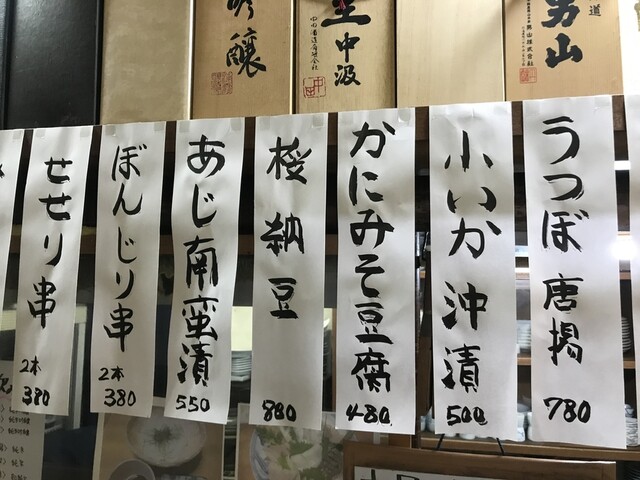 うつぼ唐揚
780
小いか沖漬
500
かにみそ豆腐
480
桜納豆
800
あじ南蛮漬
550
ぼんじり串
2本
380
せせり串
2本
380
道
男山
男山株式会社
中汲
吟醸